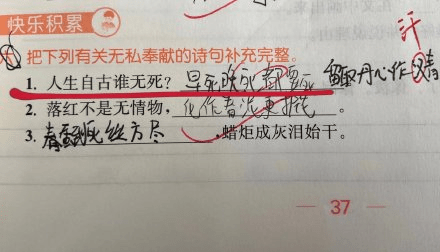 快乐积累
六、把下列有关无私奉献的诗句补充完整。
1. 人生自古谁无死？早死晚死都要死 留取丹心作汉青
汗
2. 落红不是无情物，化作春泥更护花。
3. 春蚕到死丝方尽，蜡炬成灰泪始干。
37